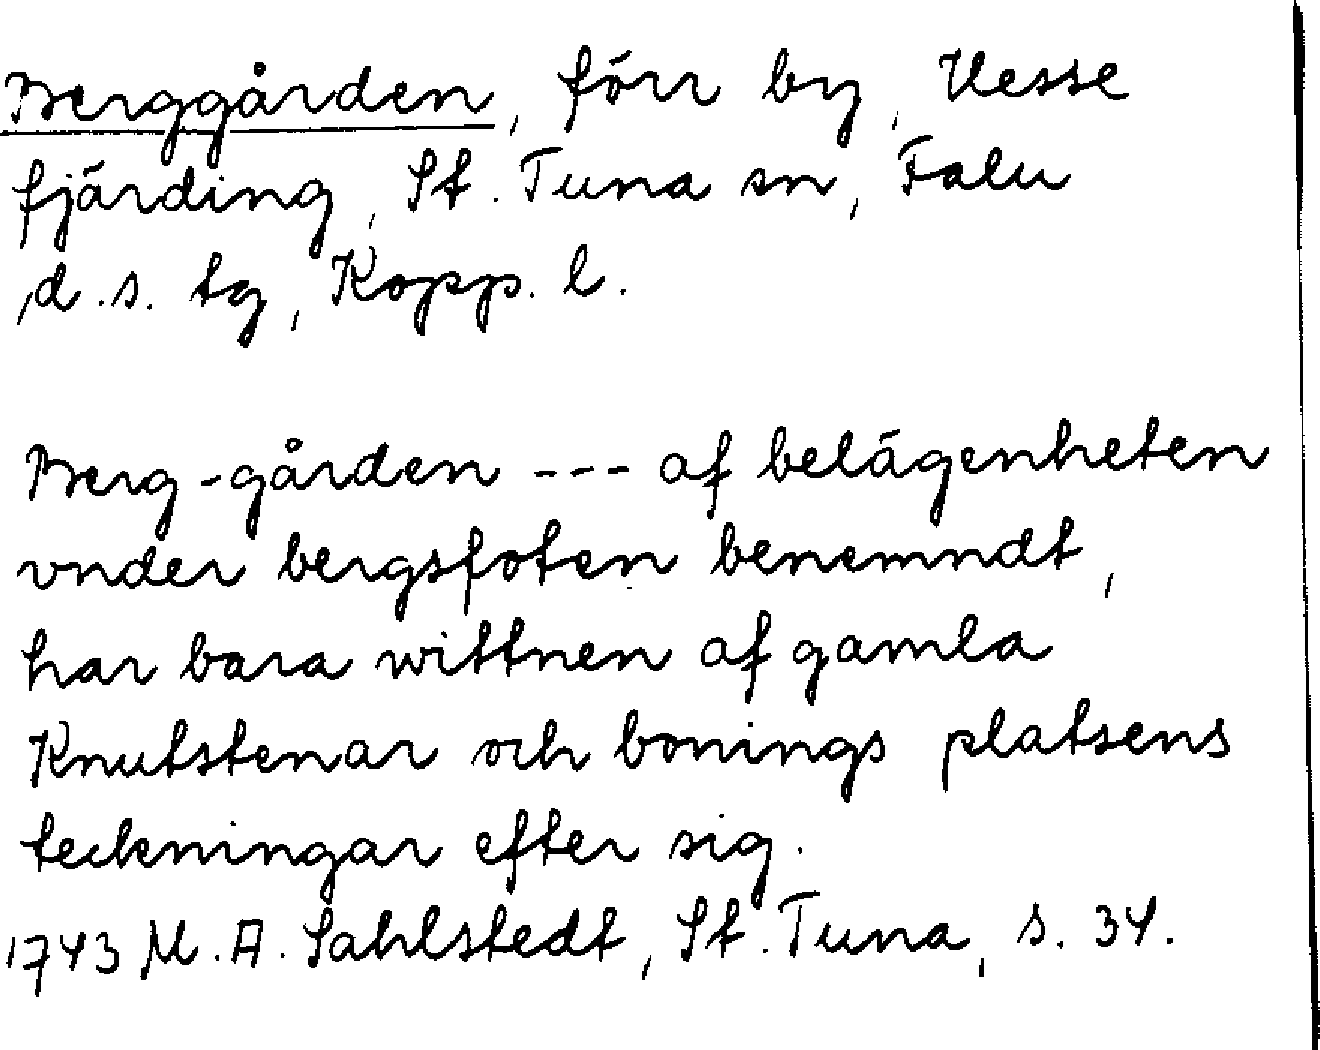 Berggården, förr by, Uesse
fjärding, St. Tuna sn, Falu
d.s. tg, Kopp. l.
Berg-gården --- af belägenheten
vnder bergsfoten benemndt,
har bara wittnen af gamla
Knutstenar och bonings platsens
teckningar efter sig.
1743 M.A. Sahlstedt, St. Tuna, s. 34.